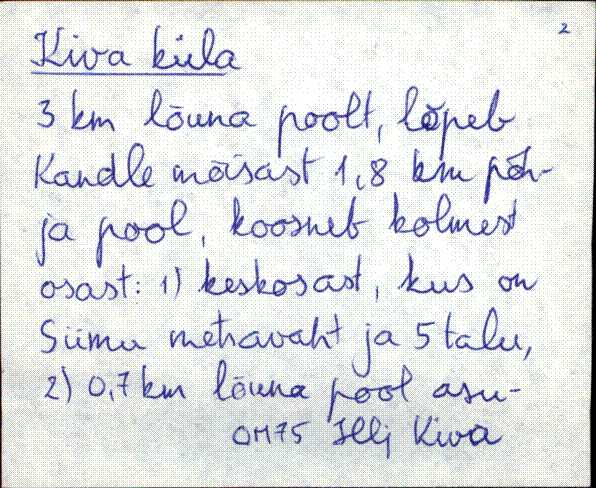 2
Kiva küla
3 km lõuna poolt, lõpeb
Kandle mõisast 1,8 km põh-
ja pool, koosneb kolmest
osast: 1) keskosast, kus on
Siimu metsavaht ja 5 talu,
2) 0,7 km lõuna pool asu-
OM75 Hlj Kiva